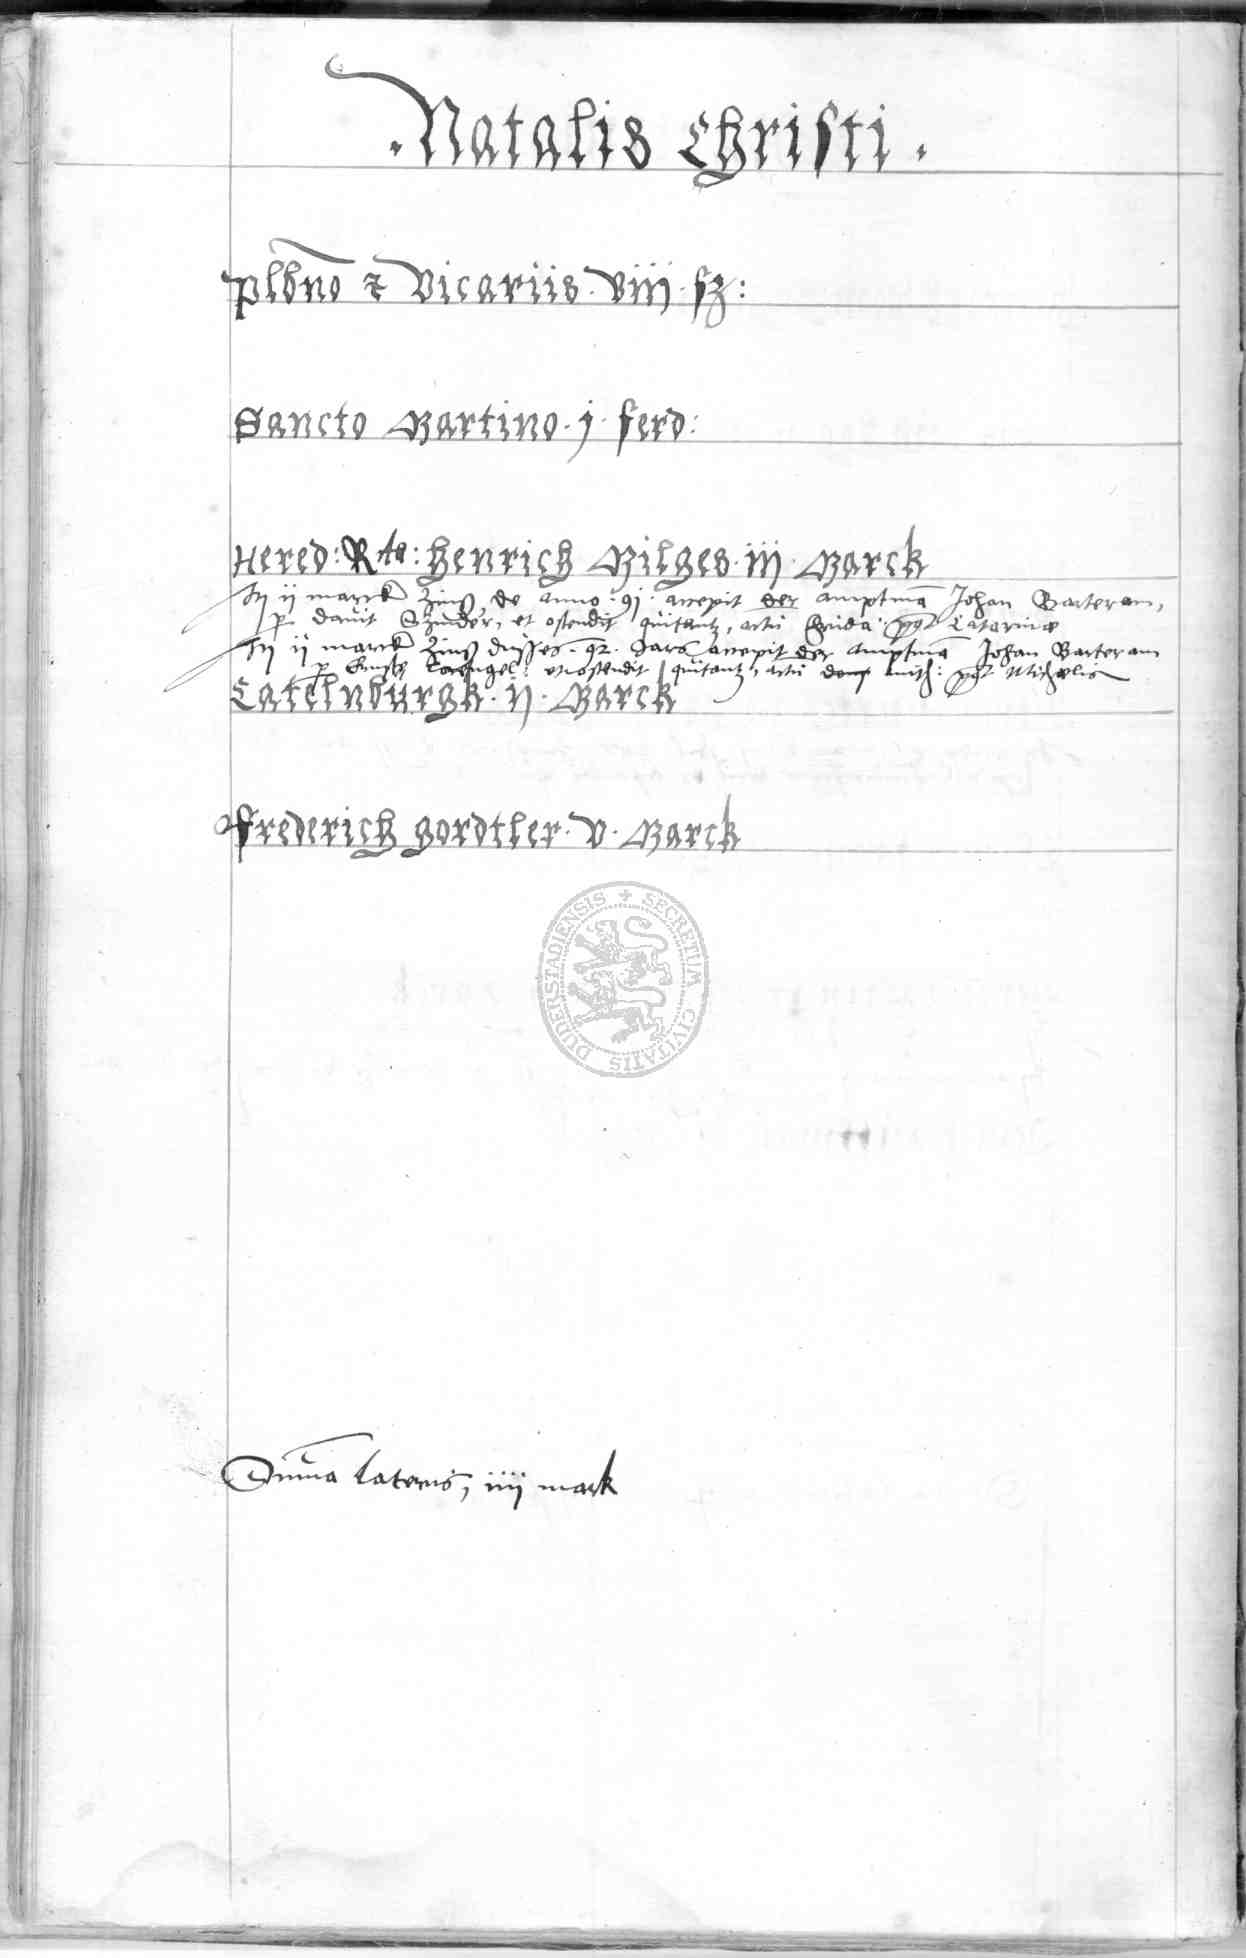 . Natalis Christi .
plbno et Vicariis . viij . ß :
Sancto Martino . j . ferd :
Hered : Rta : Henrich Hilges . iij . Marck
It ij marck Zins de anno . 91 . accepit der amptma Johan Barteram ,
p davit , et ostendit quitantz , actu pgt Catarinæ
It ij marck Zins disses . 92 . Jars accepit der amptma Johan Barteram
p Ernst et ostendit quitantz , actu pgt Michælis
Catelnburgk . ij . Marck
Frederich Gordtler . v . Marck
SECRETUM CIVITATIS DUDERSTADIENSIS
Suma lateris , iiij mark